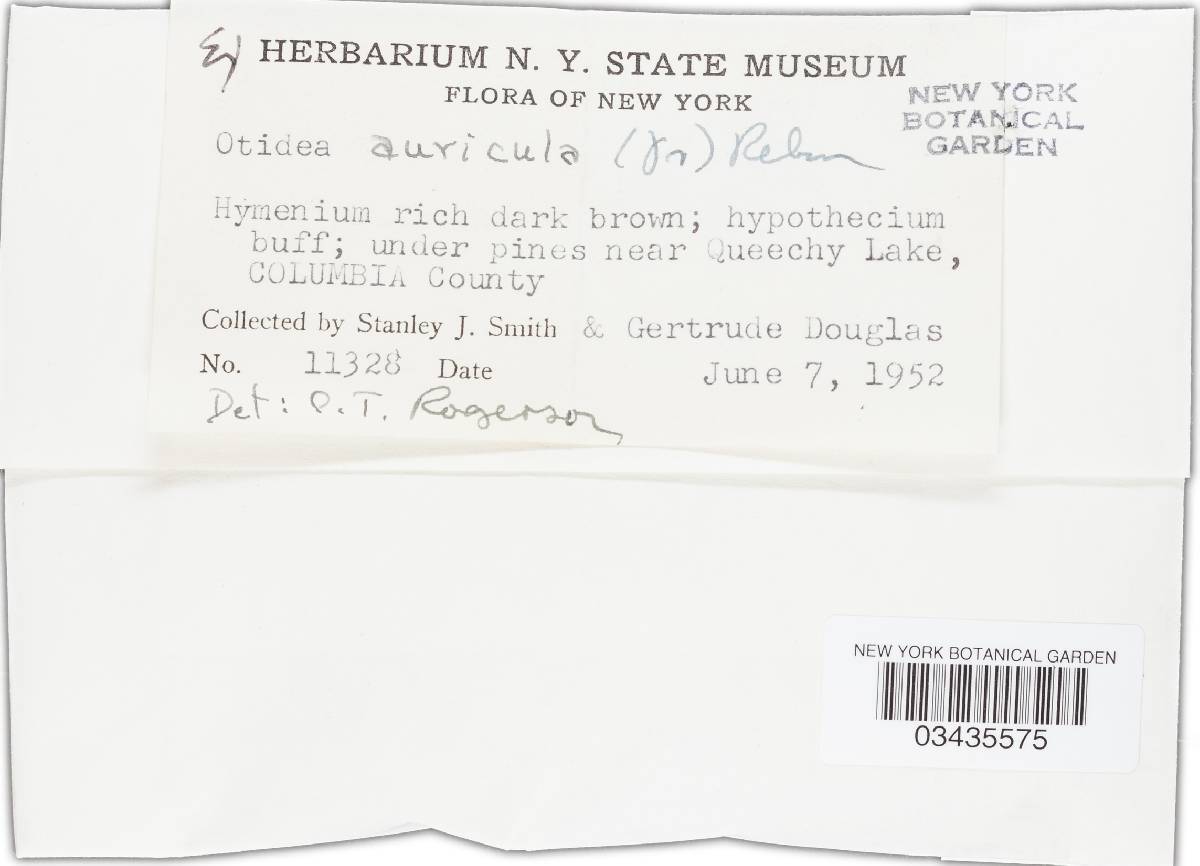 Ex HERBARIUM N. Y. STATE MUSEUM
FLORA OF NEW YORK
NEW YORK
BOTANICAL
GARDEN
Otidea auricula (Fr) Rehm
Hymenium rich dark brown; hypothecium
buff; under pines near Queechy Lake,
COLUMBIA County
Collected by Stanley J. Smith & Gertrude Douglas
No. 11328 Date June 7, 1952
Det: C. T. Rogerson
NEW YORK BOTANICAL GARDEN
03435575